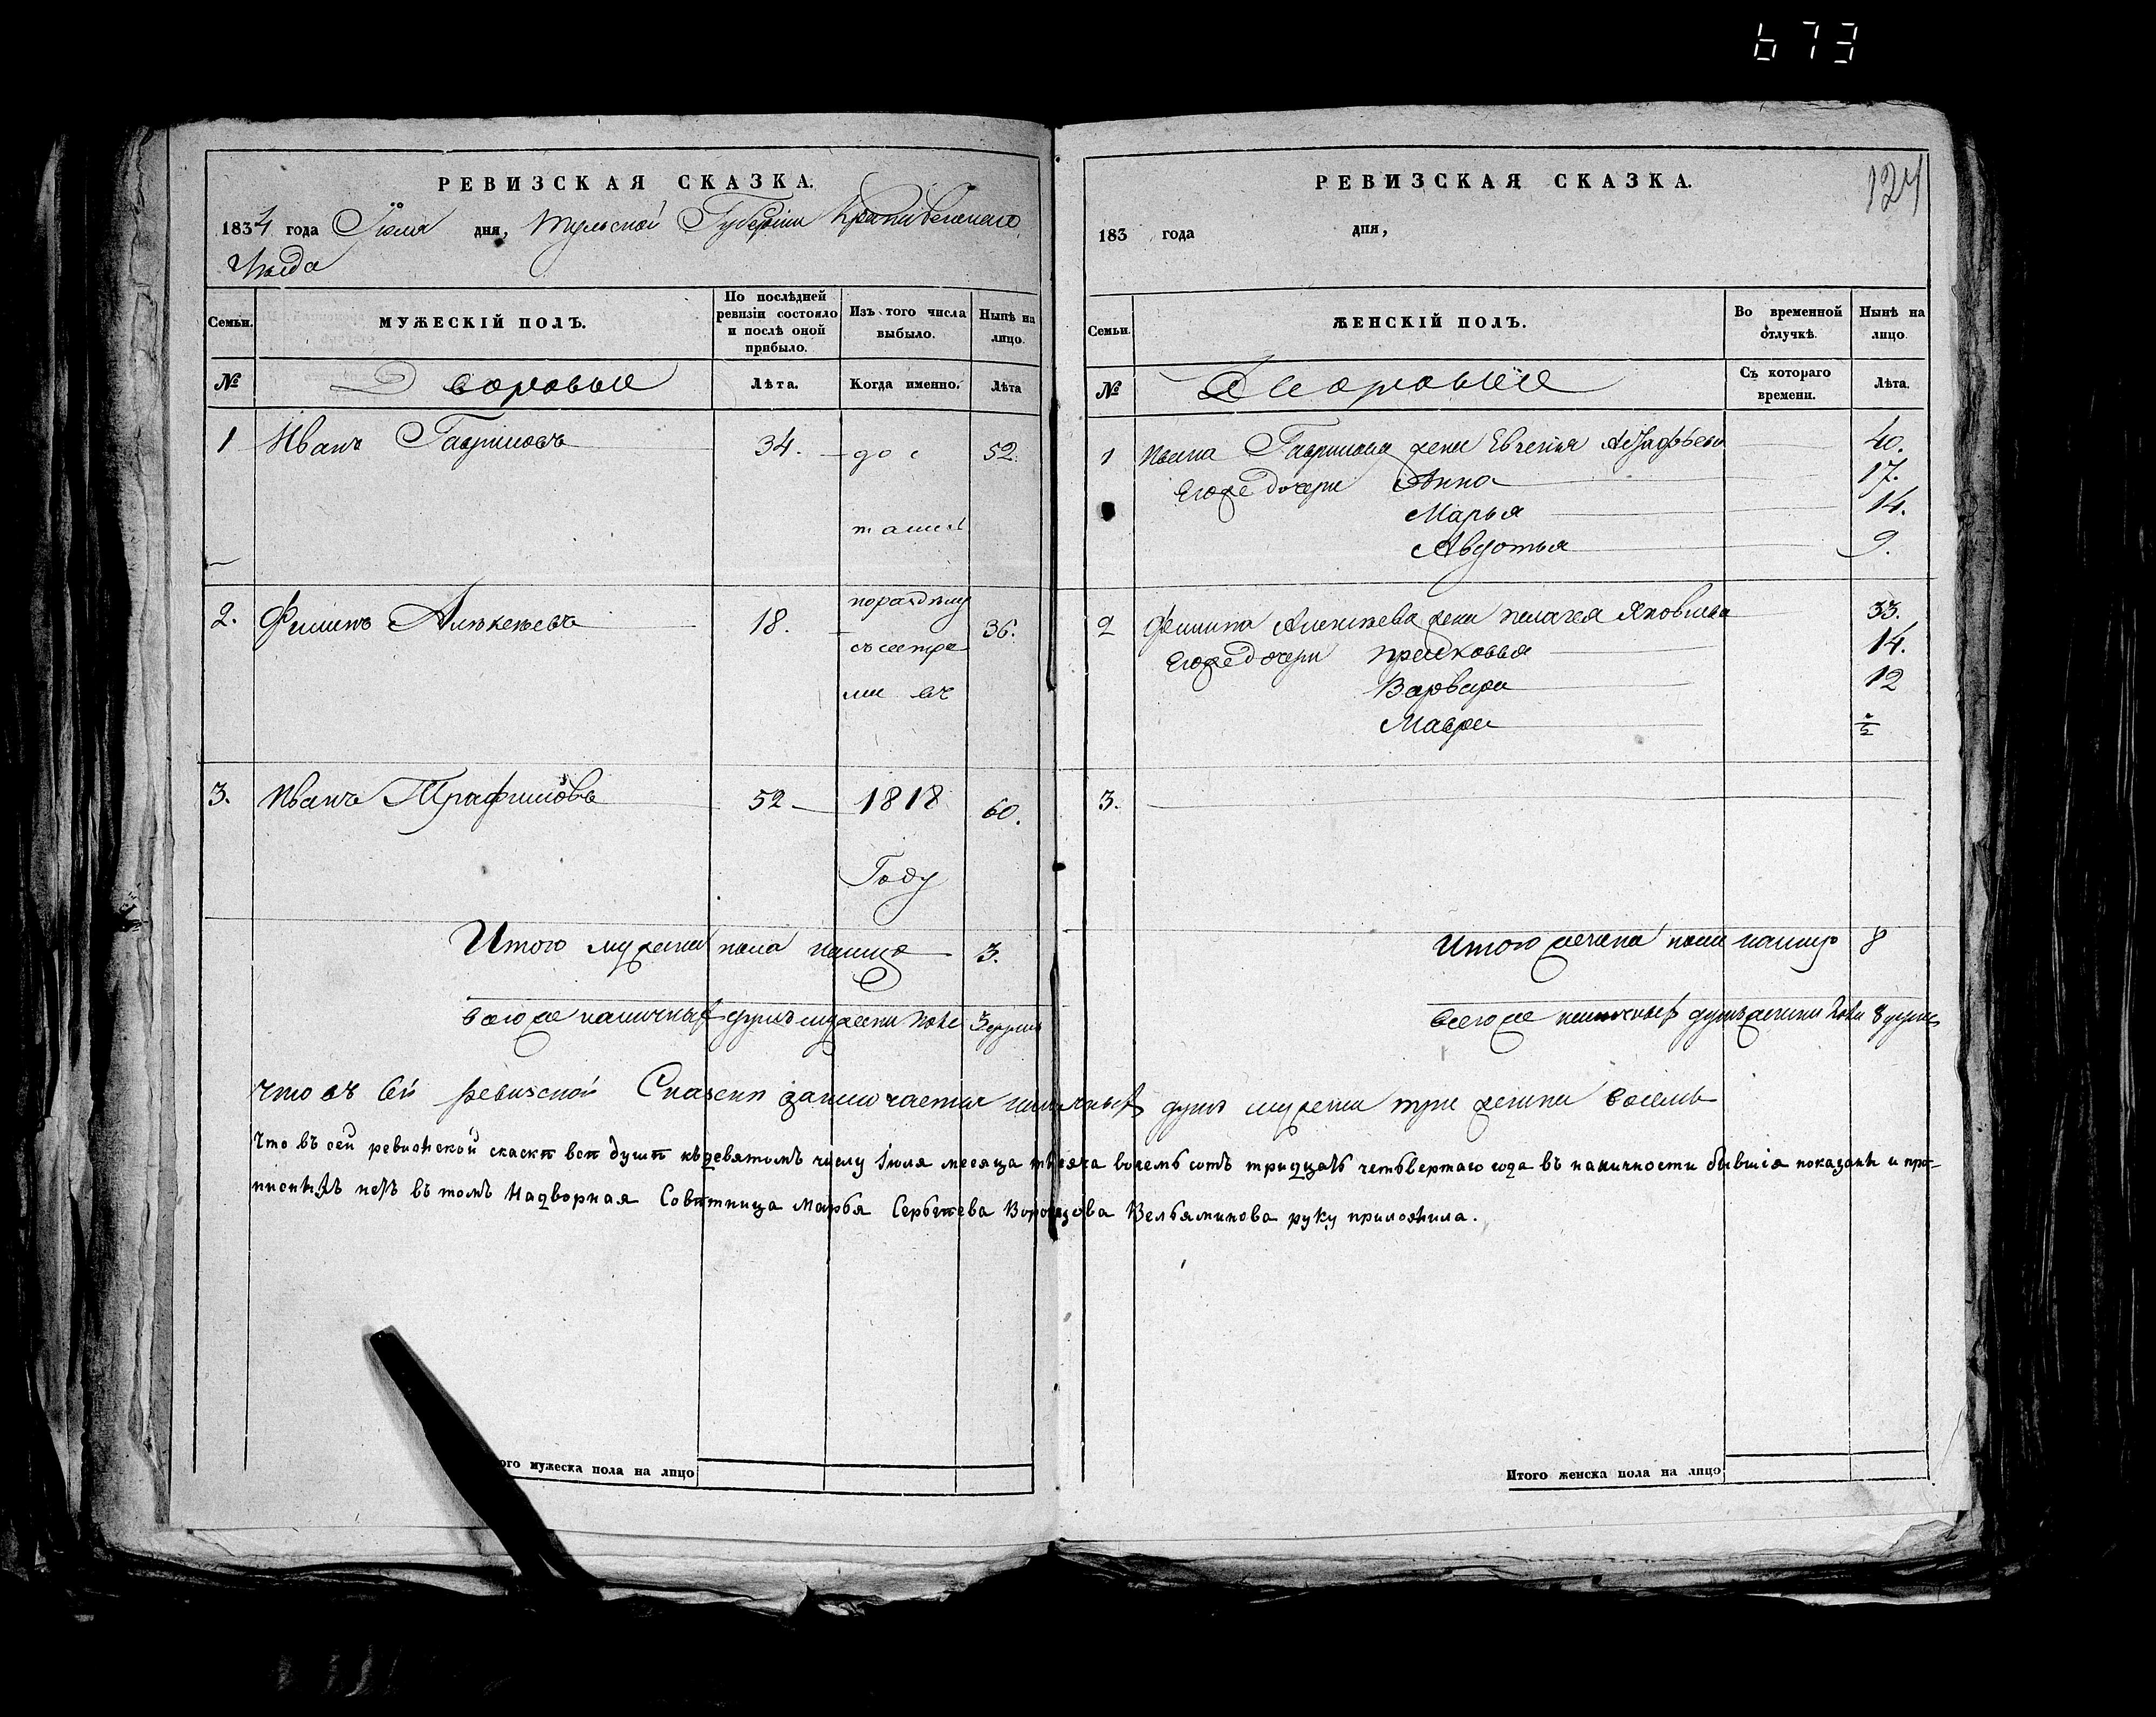 673
РЕВИЗСКАЯ СКАЗКА.
1834 года Іюля дня, Тульской Губерніи Крапивенскаго
Уѣзда
Семьи.
МУЖЕСКІЙ ПОЛЪ.
По послѣдней ревизіи состояло и послѣ оной прибыло.
Изъ того числа выбыло.
Нынѣ на лицо.
№
Дворовые
Лѣта.
Когда именно.
Лѣта
1 Иванъ Гавриловъ 34. 52.
2. Филипъ Алѣксѣевъ 18. 36.
3. Иванъ Трафимовъ 52 60.
до
пораздѣлу
съ сестра
ми въ
1818
Году
Итого мужска пола налицо 3.
Всего же наличныхъ душъ мужска пола 3 души
РЕВИЗСКАЯ СКАЗКА.
124
183 года дня,
Семьи.
ЖЕНСКІЙ ПОЛЪ.
Во временной отлучкѣ.
Нынѣ на лицо.
№
Дворовые
Съ котораго времени.
Лѣта.
1 Ивана Гаврилова жена Евгенья 40.
Егоже дочери Анна 17.
Марья 14.
Авдотья 9.
2 Филипа Алексѣева жена Пелагея Яковлева 33.
Егоже дочери Прасковья 14.
Варвара 12
Мавра
3.
Итого женска пола налицо 8
Всего же наличныхъ душъ женска пола 8 душъ
Что въ сей ревизской Сказки заключается наличныхъ душъ мужска три женска восемь
Что въ сей ревизской скаскѣ всѣ душѣ къ девятомъ числу Іюля месяца тысяча восемь сотъ тридцать четьвертаго года въ наличности бывшія показаны и про-
писныхъ нетъ въ томъ Надворная Совѣтница Марья Серьгѣева Воронцова Вельяминова руку приложила.
ого мужеска пола на лицо
Итого женска пола на лицо